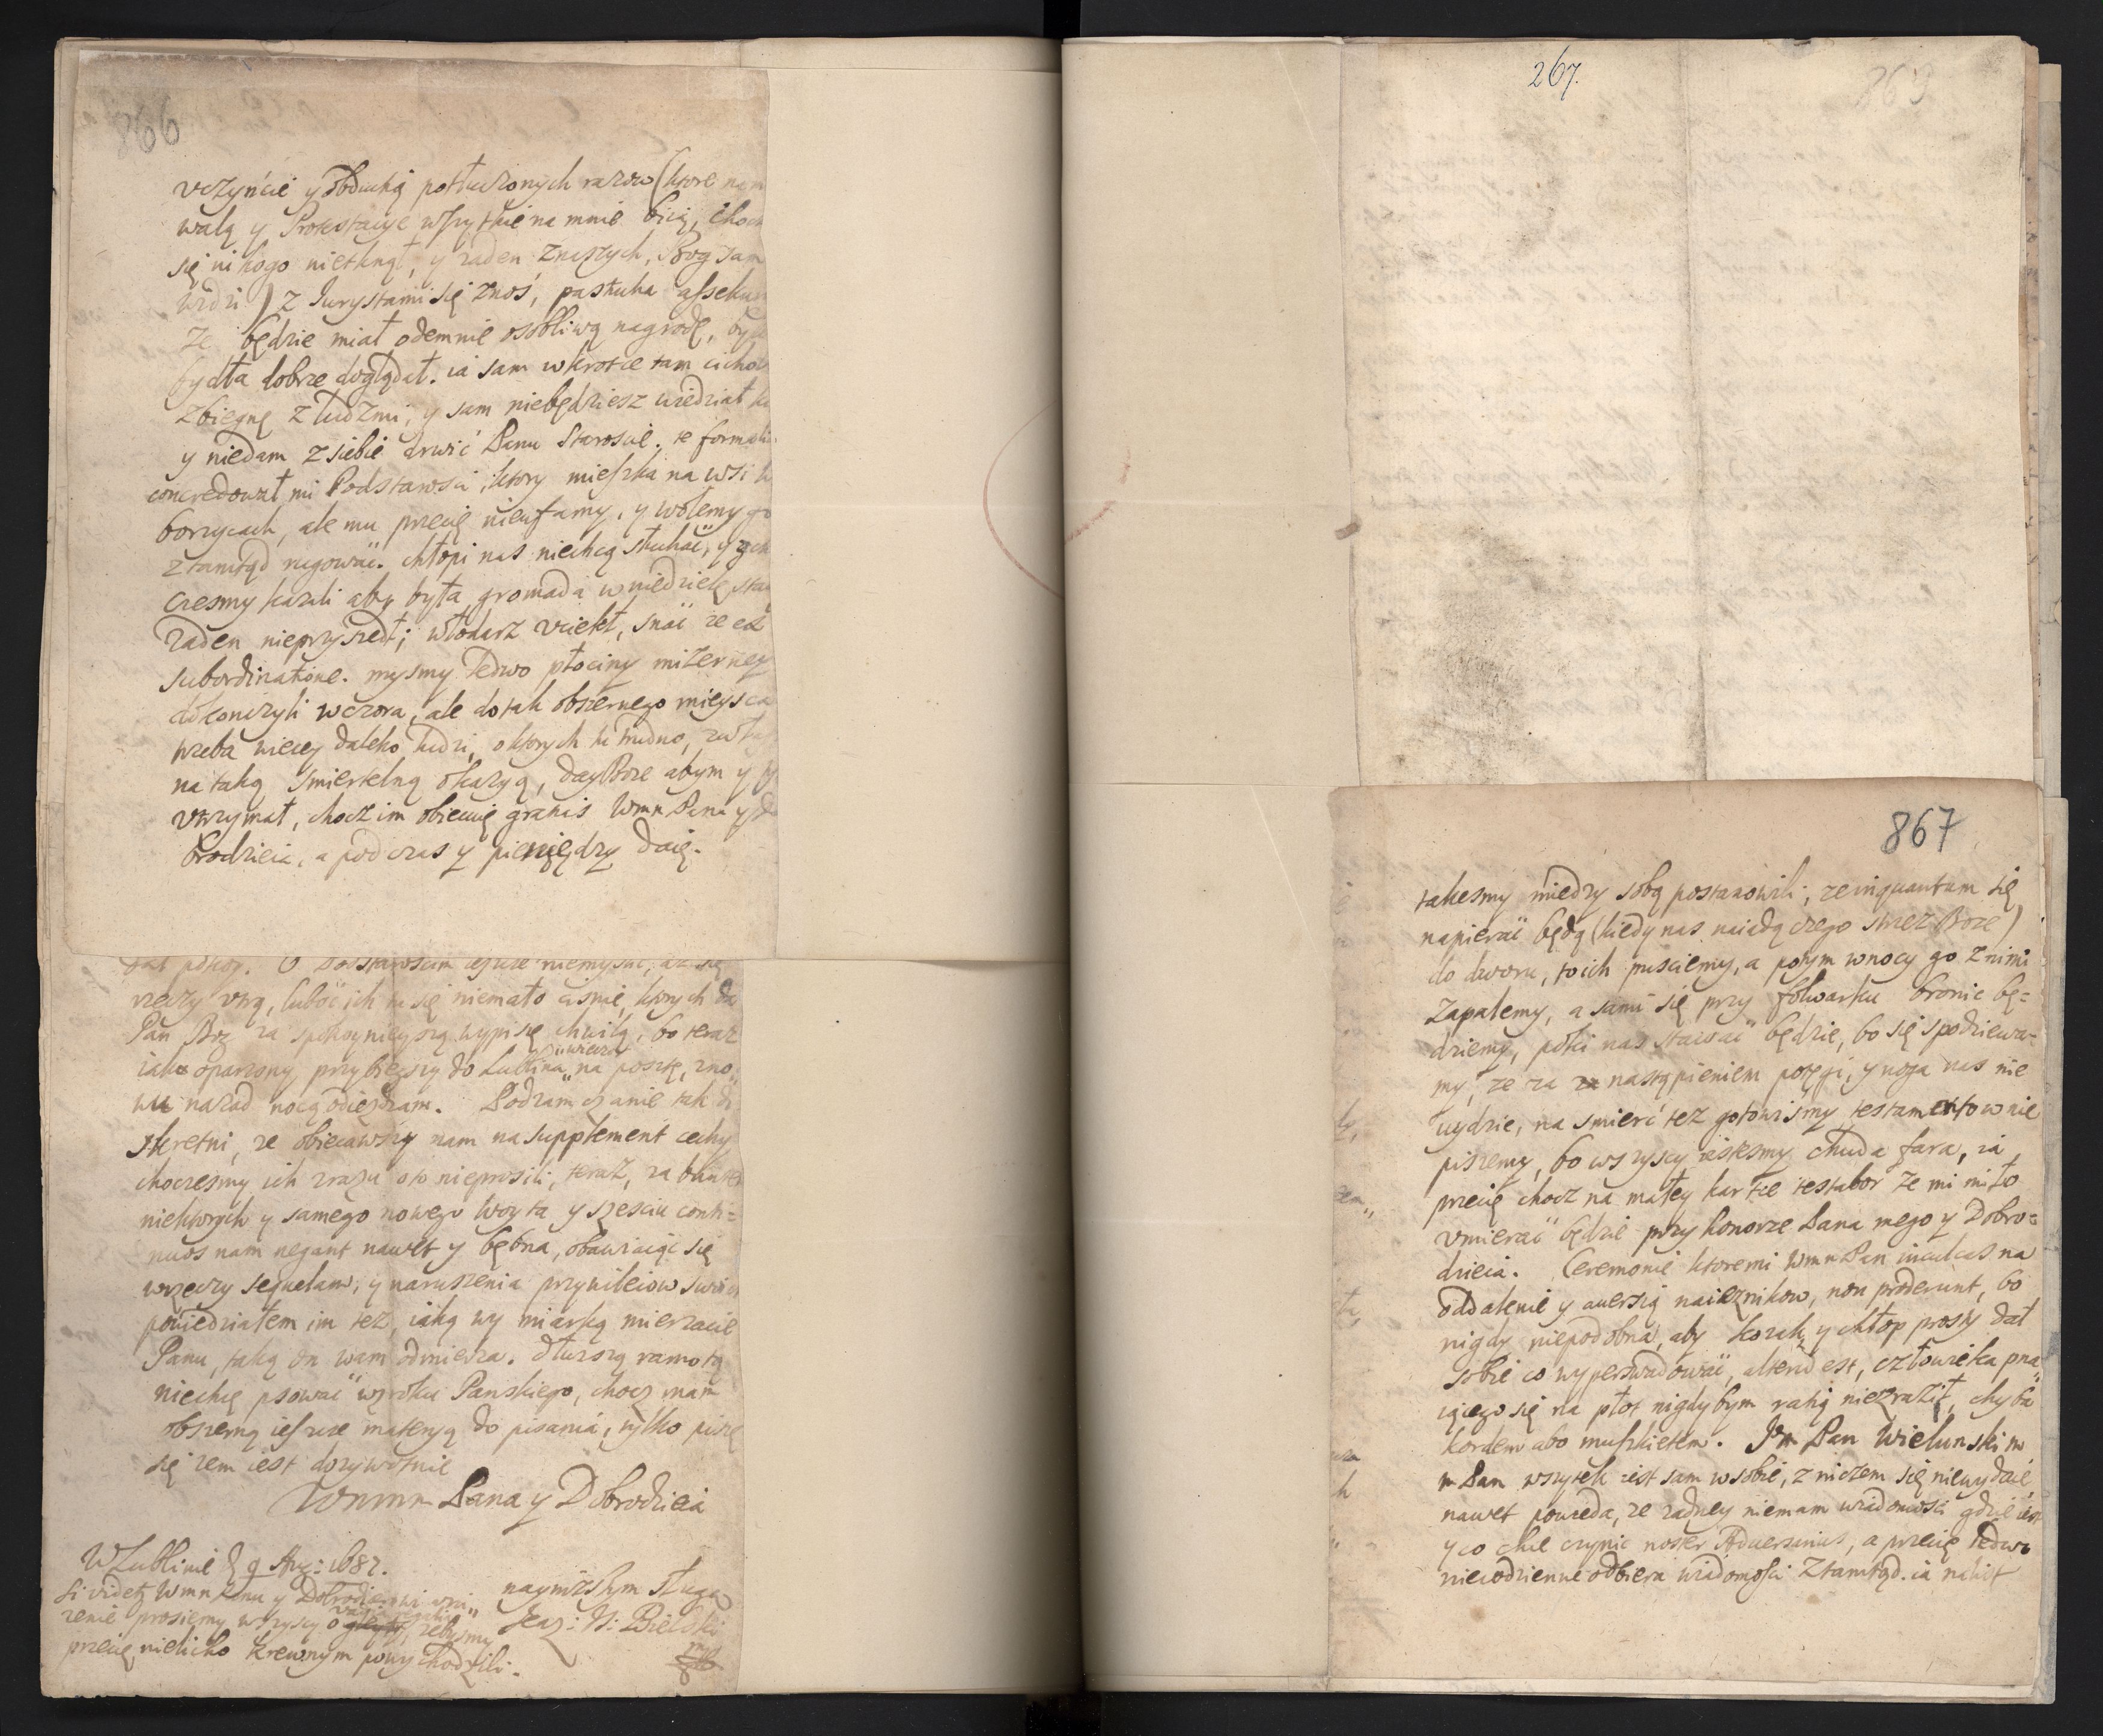 866
vczyńcie y obduchą potłuczonych razow (ktore nam
walą y Protestacye wszytkie na mnie biią, choc
się nikogo nietknął, y zaden znaszych, Bog sam
widzi) z Jurystami się znoś, pastucha assekur
ze będzie miał odemnie osobliwą nagrodę, by
bydła dobrze doglądał. ia sam wkrotce tam cicho
zbiegnę z ludzmi, y sam niebędziesz wiedział
y niedam zsiebie drwić Panu Staroscie. te formali
concredował mi Podstarosci, ktory mieszka na wsi
borzycach, ale mu przecię nieufamy, y wolemy go
ztamtąd rugować. chłopi nas niechcą słuchać, y
czesmy kazali aby była gromada w niedzielę,
zaden nieprzyszedł; włodarz vciekł, snać ze ex
subordinatione. mysmy ledwo płociny mizerney
dokonczyli wczora, ale do tak obszernego mieysca
trzeba wiecey daleko ludzi, oktorych tu trudno,
na taką smiertelną okazyą, day Boze abym y
vtrzymał, chocz im obiecuię gratis Wmn Pana y
brodzieia, a podczas y pieniędzy daię.
dał pokoy. O Podstaroscim ieszcze niemyslic, az się
rzeczy vtrą, luboć ich tu się niemało cisnie, ktorych da
Pan Bog za spokoynieyszą wypisię chwilą, bo teraz
iako oparzony przybiegszy do Lublina wieczor na posztę, zno„
wu nazad nocą odiezdzam. Podzamczanie tak di
skretni, ze obiecawszy nam na supplement cechy
chociesmy ich zrazu oto nieprosili, teraz, za bunten
niektorych y samego nowego woyta y szesciu conti=
nuos nam negant nawet y bębna, obawiaiąc się
wrzeczy sequelam, y naruszenia przywileiow swoich
powiedziałem im tez, iaką wy miarką mierzacie
Panu, taką on wam odmierza. dłuzszą ramotą
niechcę psować wzroku Panskiego, chocz mam
obszerną ieszcze materyą do pisania, tylko piszę
się zem iest dozywotnie
Wmm Pana y Dobrodzieia
W Lublinie d 9 Aug: 1687.
Si videtz Wmn Panu y Dobrodzieiowi
zenie prosiemy wszyscy o zebysmy
przecię nielicho krewnym powychodzili.
nayniższym sługą
Jerz: N: Bielski
mp
267.
869
867
takesmy miedzy sobą postanowili, ze inquantum się
napierać będą (kiedy nas naiadą czego strzez Boze)
do dworu, to ich pusciemy, a potym wnocy go znimi
zapalemy, a sami się przy folwarku bronic bę=
dziemy, poki nas stawać będzie, bo się spodziewa-
my, ze za nastąpieniem potęgi, y noga nas nie
uydzie, na smierć tez gotowismy, testamentow nie
piszemy, bo wszyscy iestesmy chuda fara, ia
przecię chocz na małey kartce testabor ze mi miło
vmierać będzie przy honorze Pana mego y Dobro=
dzieia. Ceremonie ktoremi Wmn Pan inculcas na
oddalenie y auersią naiezników, non proderunt, bo
nigdy niepodobna, aby kozak y chłop prosty dał
sobie co wyperswadować, alterū est, człowieka pna„
iącego się na płot nigdybym racią niezraził, chyba
kordem abo muszkietem. Jm Pan Wielunski m
m Pan wszytek iest sam wsobie, z niczem się niewydaie
nawet powieda, ze zadney niemam wiadomości gdzie iest
y co chce czynic noster Aduersarius, a przecię ledwo
niecodzienne odbiera wiadomosci ztamtąd. ia nawet